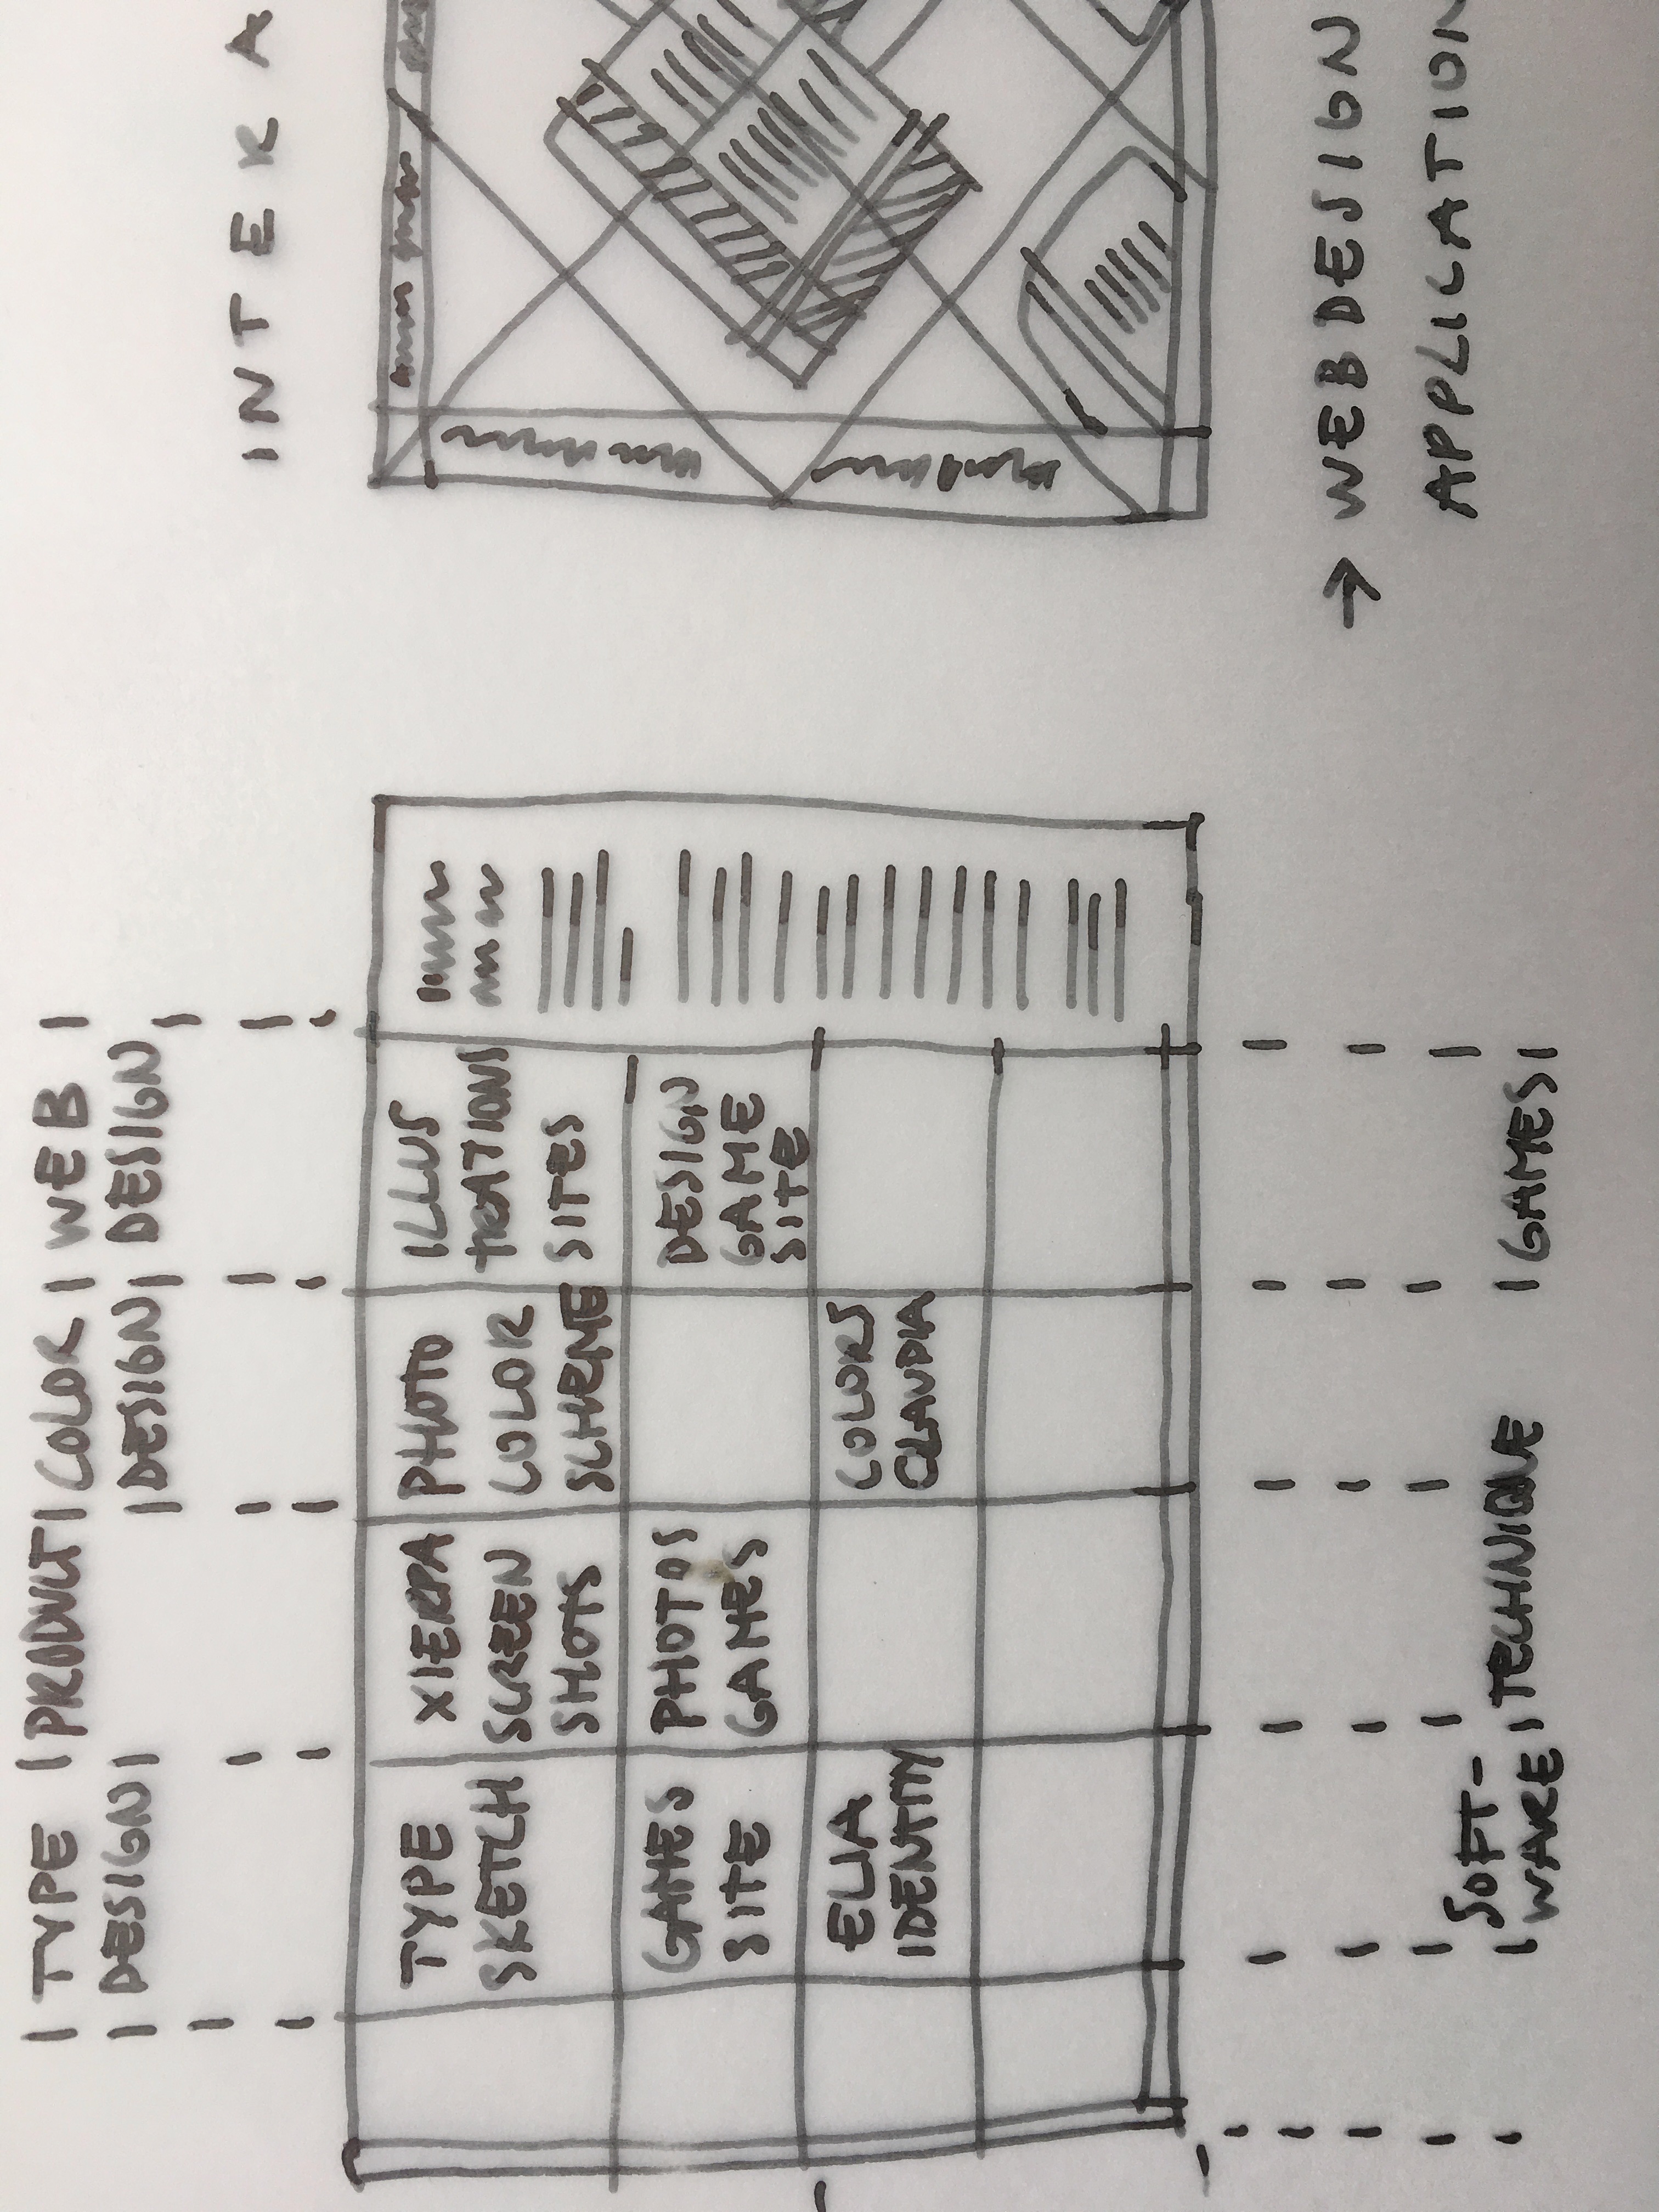 TYPE | PRODUCT | COLOR | WEB |
DESIGN | | DESIGN | DESIGN
TYPE
SKETCH
XIERPA
SCREEN
SHOTS
PHOTO
COLOR
SCHEME
ILLUS
TRATIONS
SITES
GAMES
SITE
PHOTOS
GAMES
DESIGN
GAME
SITE
ELIA
IDENTITY
COLORS
CLAUDIA
SOFT-
WARE | TECHNIQUE | GAMES |
INTERA
→ WEBDESIGN
APPLICATION